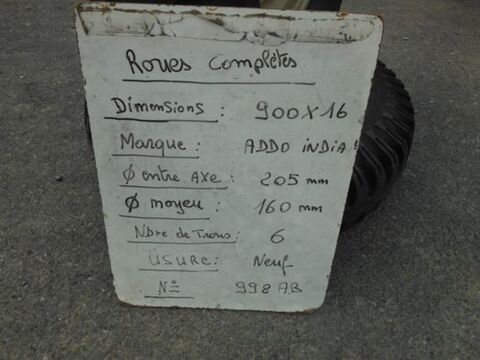 Roues Complètes
Dimensions : 900x16
Marque : ADDO iNDiA
Ø entre AXE : 205 mm
Ø moyeu : 160 mm
Nbre de Trous : 6
USURE : Neuf
N° 998 AB